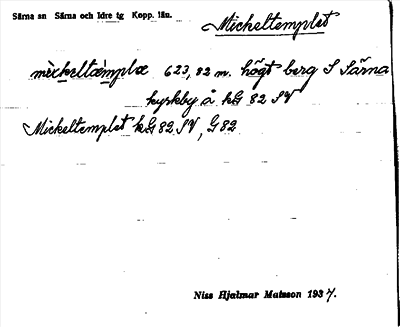 Särna sn Särna och Idre tg Kopp. län.
Mickeltemplet
mìckeltæmplæ 623,82 m. högt berg S Särna
kyrkby å kG 82 SV
Mickeltemplet kG 82 SV, G 82
Niss Hjalmar Matsson 1937.